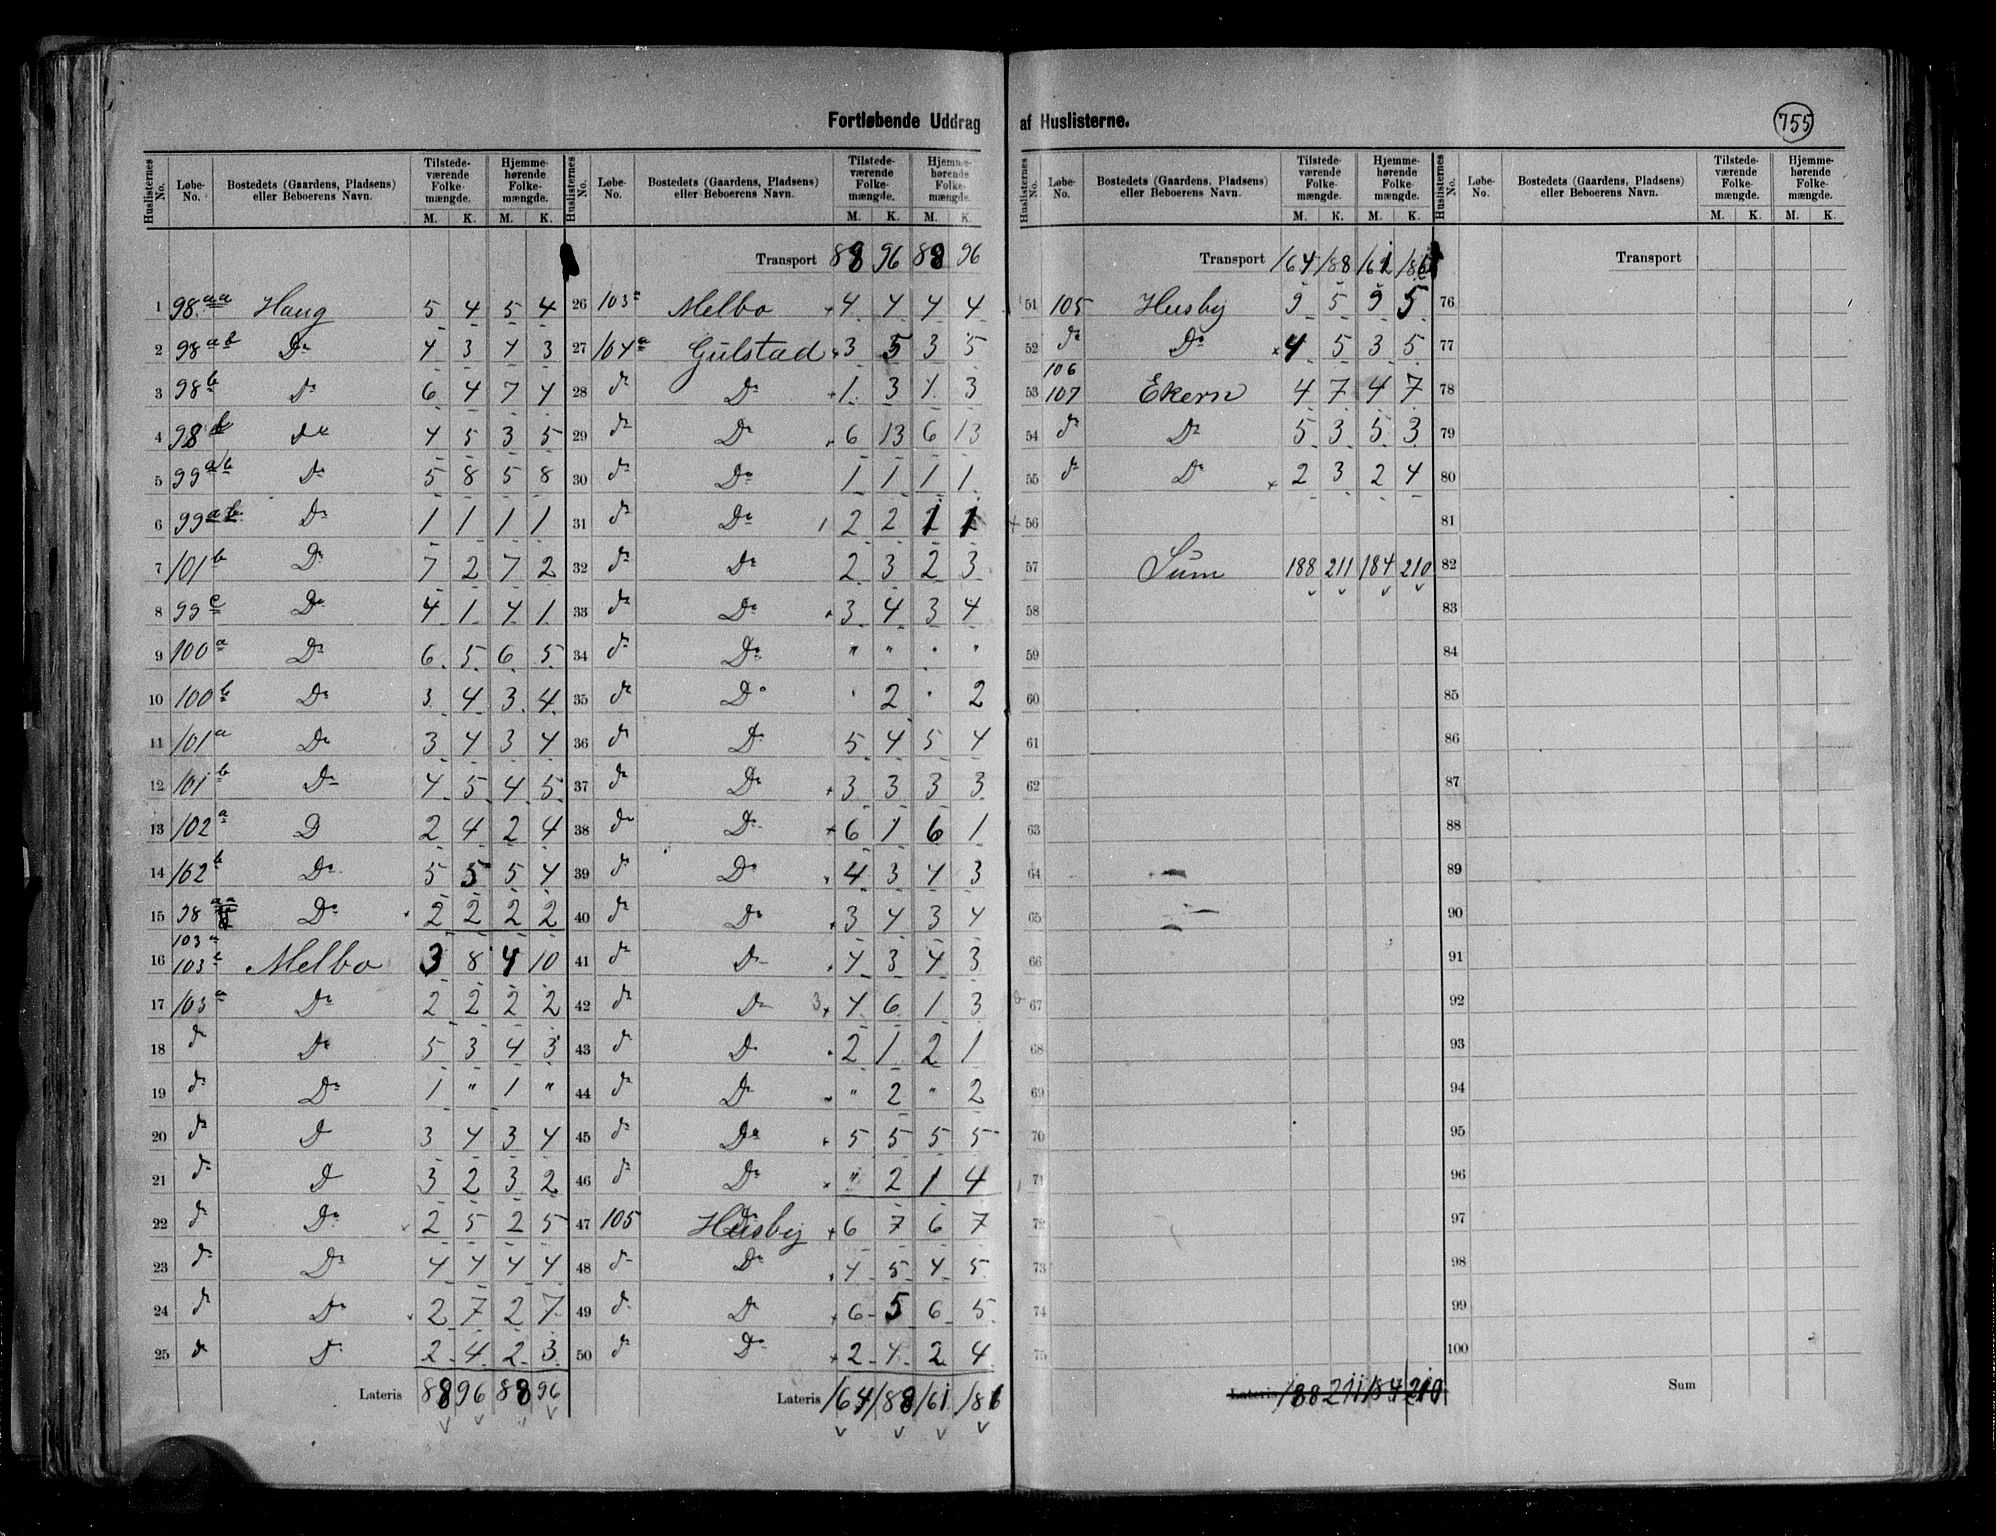 Fortløbende Uddrag af Huslisterne.
755
Huslisternes No. Løbe-No. Bostedets (Gaardens, Pladsens) eller Beboerens Navn. Tilstedeværende Folkemængde. M. K. Hjemmehørende Folkemængde. M. K.
1 98aa Haug 5 4 5 4
2 98ab Do 4 3 4 3
3 98b Do 6 4 7 4
4 98b do 4 5 3 5
5 99ab Do 5 8 5 8
6 99ab Do 1 1 1 1
7 101b Do 7 2 7 2
8 99c Do 4 1 4 1
9 100a Do 6 5 6 5
10 100b Do 3 4 3 4
11 101a Do 3 4 3 4
12 101b Do 4 5 4 5
13 102a D 2 4 2 4
14 102b Do 5 5 5 4
15 98aa Do 2 2 2 2
16 103a 103b Melbo 3 8 4 10
17 103a Do 2 2 2 2
18 do Do 5 3 4 3
19 do Do 1 " 1 "
20 do D 3 4 3 4
21 do D 3 2 3 2
22 do Do 2 5 2 5
23 do Do 4 4 4 4
24 do Do 2 7 2 7
25 do Do 2 4 2 3
Lateris 88 96 88 96
Huslisternes No. Løbe-No. Bostedets (Gaardens, Pladsens) eller Beboerens Navn. Tilstedeværende Folkemængde. M. K. Hjemmehørende Folkemængde. M. K.
Transport 88 96 88 96
26 103a Melbo 4 4 4 4
27 104a Gulstad 3 5 3 5
28 do Do 1 3 1 3
29 do Do 6 13 6 13
30 do Do 1 1 1 1
31 do Do 1 2 2 1 1
32 do Do 2 3 2 3
33 do Do 3 4 3 4
34 do Do " " " "
35 do Do " 2 " 2
36 do Do 5 4 5 4
37 do Do 3 3 3 3
38 do Do 6 1 6 1
39 do Do 4 3 4 3
40 do Do 3 4 3 4
41 do Do 4 3 4 3
42 do Do 3 4 6 1 3
43 do Do 2 1 2 1
44 do Do " 2 " 2
45 do Do 5 5 5 5
46 do Do " 2 1 4
47 105 Husby 6 7 6 7
48 do Do 4 5 4 5
49 do D 6 5 6 5
50 do Do 2 4 2 4
Lateris 164 188 161 186
Huslisternes No. Løbe-No. Bostedets (Gaardens, Pladsens) eller Beboerens Navn. Tilstedeværende Folkemængde. M. K. Hjemmehørende Folkemængde. M. K.
Transport 164 188 161 186
51 105 Husby 9 5 9 5
52 do Do 4 5 3 5
53 106 107 Ekern 4 7 4 7
54 do Do 5 3 5 3
55 do Do 2 3 2 4
56
57 Sum 188 211 184 210
58
59
60
61
62
63
64
65
66
67
68
69
70
71
72
73
74
75
Lateris 188 211 184 210
Huslisternes No. Løbe-No. Bostedets (Gaardens, Pladsens) eller Beboerens Navn. Tilstedeværende Folkemængde. M. K. Hjemmehørende Folkemængde. M. K.
Transport
76
77
78
79
80
81
82
83
84
85
86
87
88
89
90
91
92
93
94
95
96
97
98
99
100
Sum